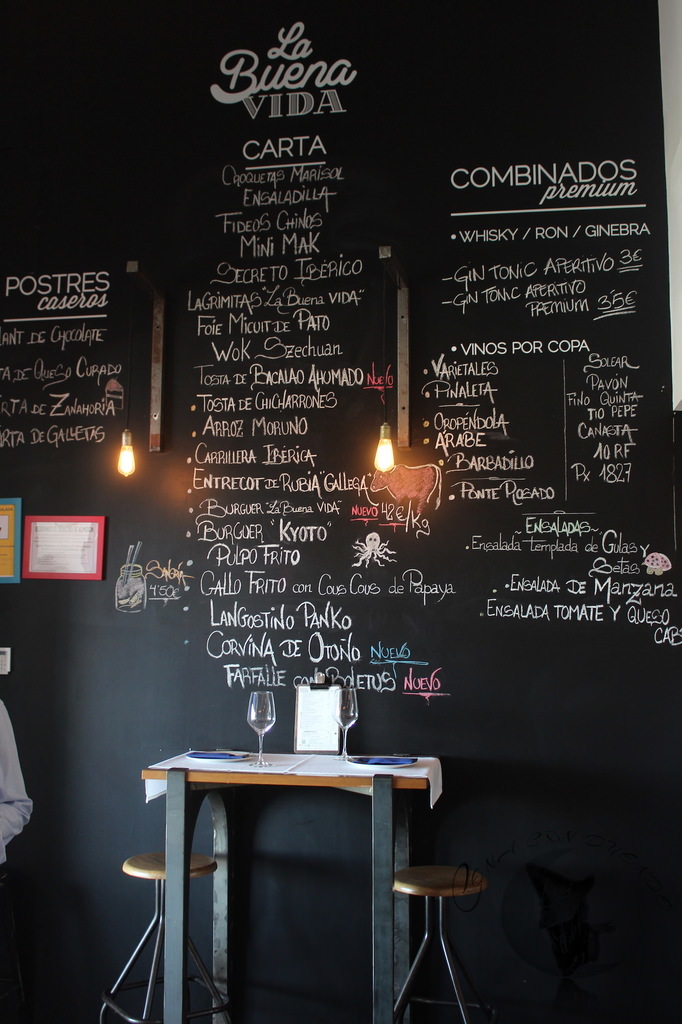 La
Buena
VIDA
CARTA
Croquetas Marisol
Ensaladilla
Fideos Chinos
Mini Mak
Secreto Ibérico
Lagrimitas "La Buena vida"
Foie Micuit de Pato
Wok Szechuan
Tosta de Bacalao Ahumado Nuevo
• Tosta de Chicharrones
• Arroz Moruno
• Carrillera Ibérica
Entrecot de Rubia "Gallega"
Nuevo 42€/Kg
• Burguer "La Buena Vida"
• Burguer "Kyoto"
• Pulpo Frito
• Gallo Frito con Cous Cous de Papaya
Langostino Panko
Corvina de Otoño Nuevo
Farfalle con Boletus Nuevo
POSTRES
caseros
ant de Chocolate
ta de Queso Curado
rta de Zanahoria
arta de Galletas
Sangría
4'50€
COMBINADOS
premium
• WHISKY / RON / GINEBRA
- Gin Tonic Aperitivo 3€
- Gin Tonic Aperitivo
Premium 3'5€
• VINOS POR COPA
• Varietales
• Pinaleta
• Oropéndola
• Arabe
• Barbadillo
• Ponte Rosado
Solear
Pavón
Fino Quinta
Tio Pepe
Canasta
10 RF
Px 1827
~ Ensaladas ~
• Ensalada Templada de Gulas y
Setas
• Ensalada de Manzana
• Ensalada Tomate y Queso
Cab